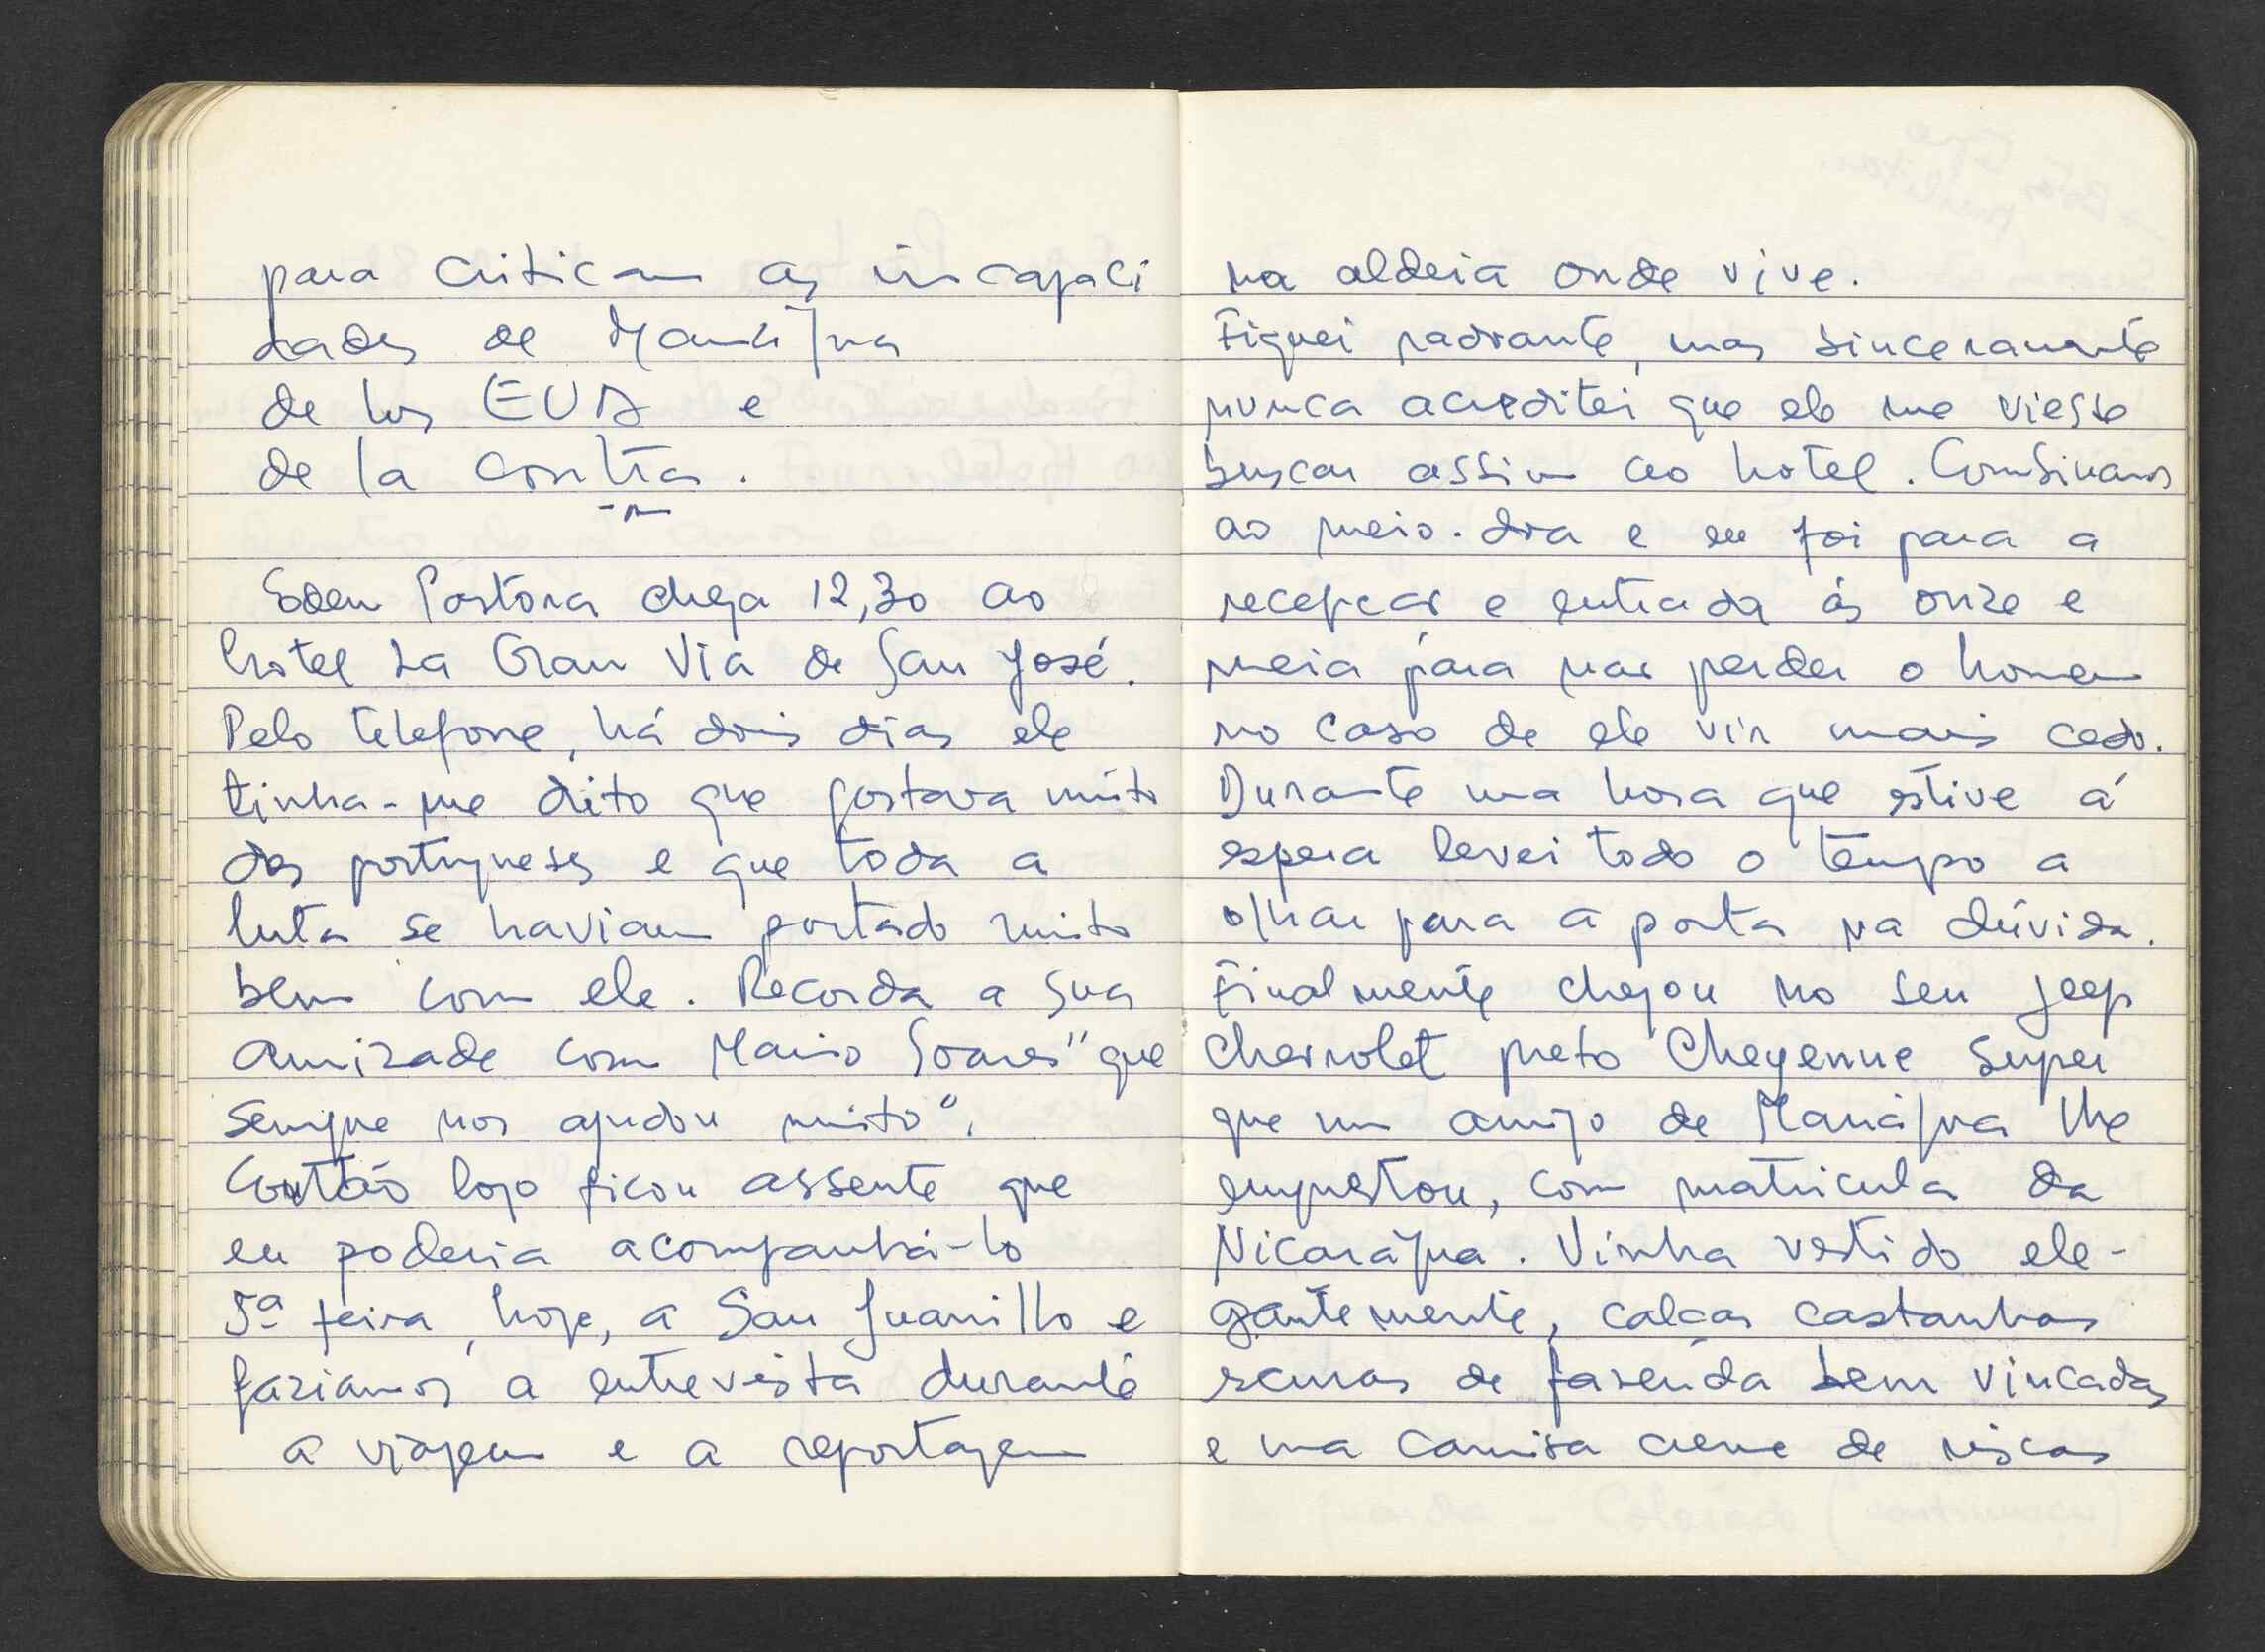 para criticar as incapaci
dades de Manágua
de los EUA e
de la contra.
Eden Pastora chega 12,30 ao
hotel La Gran Via de San José.
Pelo telefone, há dois dias ele
tinha-me dito que gostava muito
dos portugueses e que toda a
luta se haviam portado muito
bem com ele. Recorda a sua
amizade com Mario Soares "que
sempre nos ajudou muito".
Então logo ficou assente que
eu poderia acompanhá-lo
5ª feira, hoje, a San Juanillo e
faziamos a entrevista durante
a viagem e a reportagem
na aldeia onde vive.
Fiquei radiante, mas sinceramente
nunca acreditei que ele me viesse
buscar assim ao hotel. Combinamos
ao meio-dia e eu foi para a
recepçao e entrada ás onze e
meia para nao perder o homem
no caso de ele vir mais cedo.
Durante uma hora que estive á
espera levei todo o tempo a
olhar para a porta na dúvida.
Finalmente chegou no seu jeep
Chevrolet preto Cheyenne Super
que um amigo de Manágua lhe
emprestou, com matricula da
Nicarágua. Vinha vestido ele-
gantemente, calças castanhas
escuras de fazenda bem vincadas
e uma camisa creme de riscas